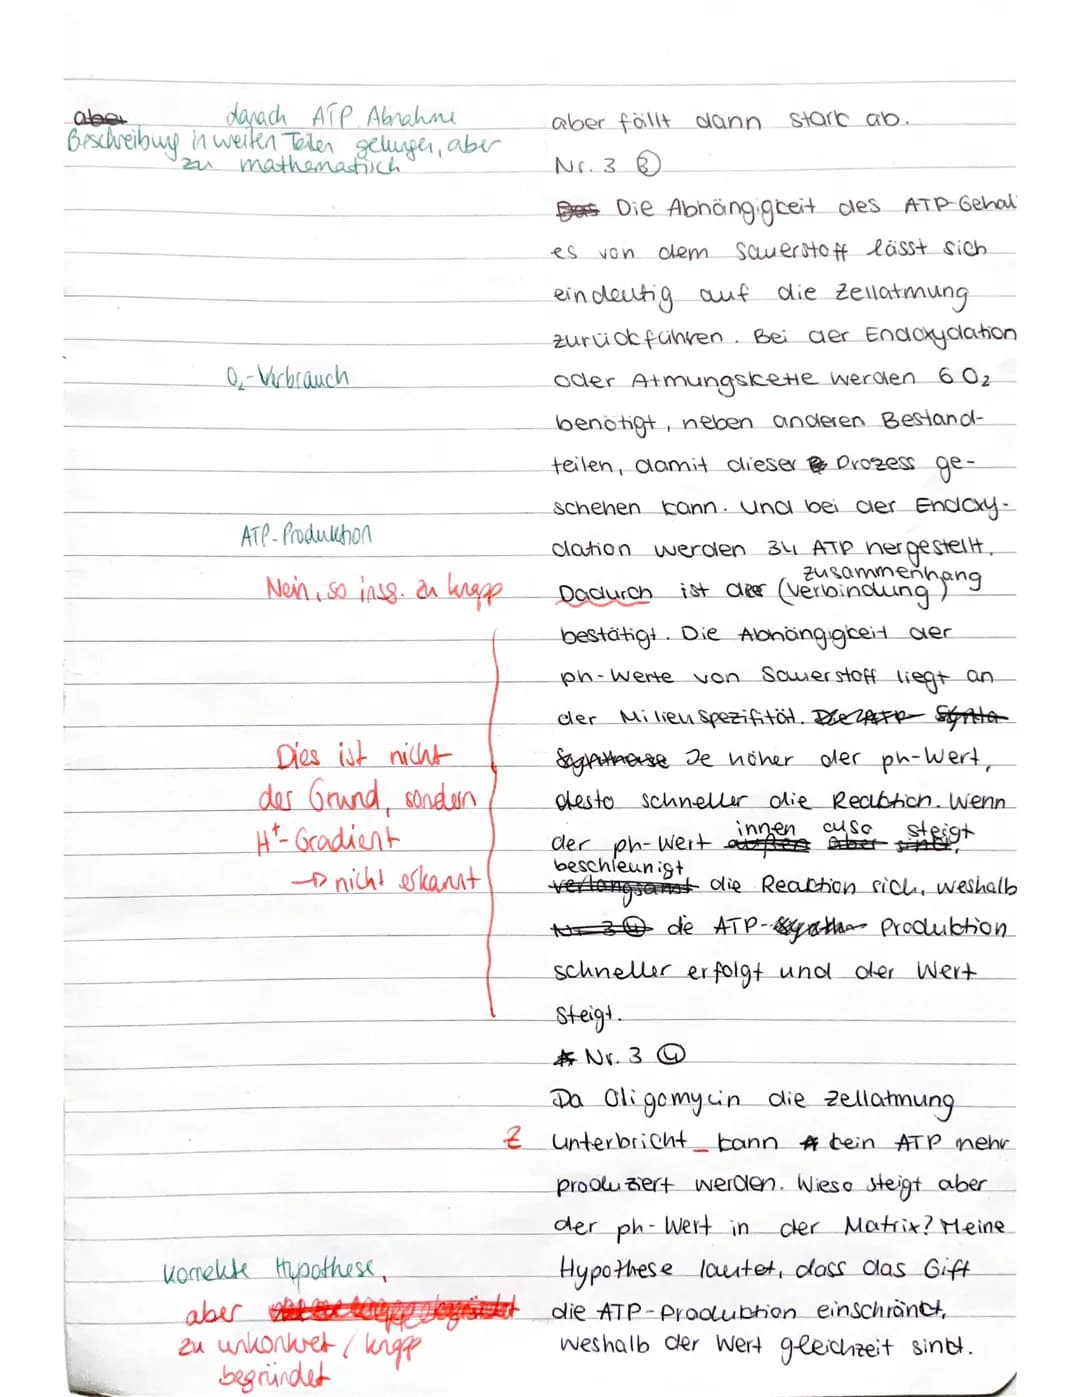 aber danach ATP Abnahme
Beschreibung in weiten Teilen gelungen, aber
zu mathematisch
aber fällt dann stark ab.
Nr. 3 ③
Das Die Abhängigkeit des ATP-Gehal
es von dem Sauerstoff lässt sich
eindeutig auf die Zellatmung
zurückführen. Bei der Endoxydation
O₂-Verbrauch
oder Atmungskette werden 6 O₂
benötigt, neben anderen Bestand-
teilen, damit dieser Prozess ge-
schehen kann. Und bei der Endoxy-
ATP-Produktion
dation werden 34 ATP hergestellt.
zusammenhang
Nein, so insg. zu knapp
Dadurch ist der (Verbindung)
bestätigt. Die Abhängigkeit der
ph-Werte von Sauerstoff liegt an
der Milieuspezifität. Die ATP
Dies ist nicht
der Grund, sondern
H⁺-Gradient
→ nicht erkannt
Je höher der ph-Wert,
desto schneller die Reaktion. Wenn
innen also steigt
der ph-Wert außen aber sinkt,
beschleunigt
verlangsamt die Reaktion sich, weshalb
Nr. 3 ④ die ATP- Produktion
schneller erfolgt und der Wert
steigt.
Nr. 3 ④
Da Oligomycin die Zellatmung
Z
unterbricht_ kann kein ATP mehr
produziert werden. Wieso steigt aber
der ph-Wert in der Matrix? Meine
korrekte Hypothese,
aber
zu unkonkret / knapp
begründet
Hypothese lautet, dass das Gift
die ATP-Produktion einschränkt,
weshalb der Wert gleichzeit sinkt.